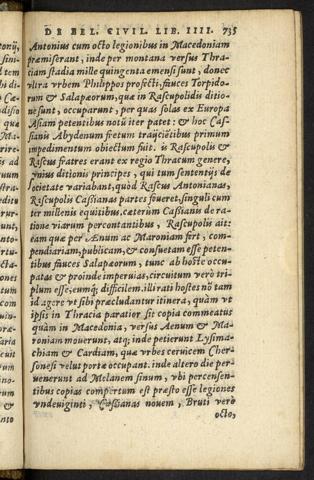 DE BEL. CIVIL. LIB. IIII. 735
Antonius cum octo legionibus in Macedoniam
præmiserant, inde per montana versus Thra
ciam stadia mille quingenta emensi sunt, donec
vltra vrbem Philippos profecti, fauces Torpido-
rum & Salapæorum, quæ in Rascupolidis ditio-
ne sunt, occuparunt, per quas solas ex Europa
Asiam petentibus notū iter patet: & hoc Cas-
sianis Abydenum fretum traijcientibus primum
impedimentum obiectum fuit. is Rascupolis &
Rascus fratres erant ex regio Thracum genere,
vnius ditionis principes, qui tum sententijs de
societate variabant, quòd Rascus Antonianas,
Rascupolis Cassianas partes foueret, singuli cum
ter millenis equitibus. cæterùm Cassianis de ra-
tione viarum percontantibus, Rascupolis ait:
eam quæ per Ænum ac Maroniam fert, com-
pendiariam, publicam, & consuetam esse peten-
tibus fauces Salapæorum, tunc ab hoste occu-
patas & proinde imperuias, circuitum verò tri-
plum esse, eumq; difficilem. illi rati hostes nō tam
id agere vt sibi præcludantur itinera, quàm vt
ipsis in Thracia paratior sit copia commeatus
quàm in Macedonia, versus Aenum & Ma-
roniam mouerunt, atq; inde petierunt Lysima-
chiam & Cardiam, quæ vrbes ceruicem Cher-
sonesi velut portæ occupant. inde altero die per-
uenerunt ad Melanem sinum, vbi percensen-
tibus copias compertum est præsto esse legiones
vndeuiginti, Cassianas nouem, Bruti verò
octo,